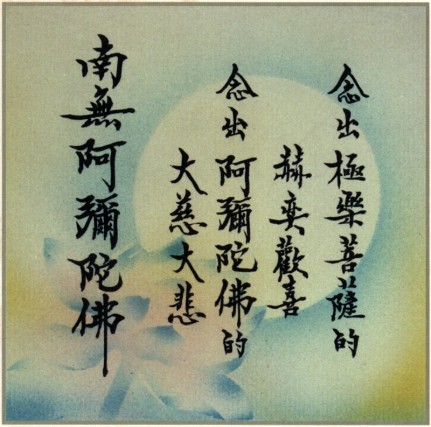 念出極樂菩薩的
赫奕歡喜
念出阿彌陀佛的
大慈大悲
南無阿彌陀佛